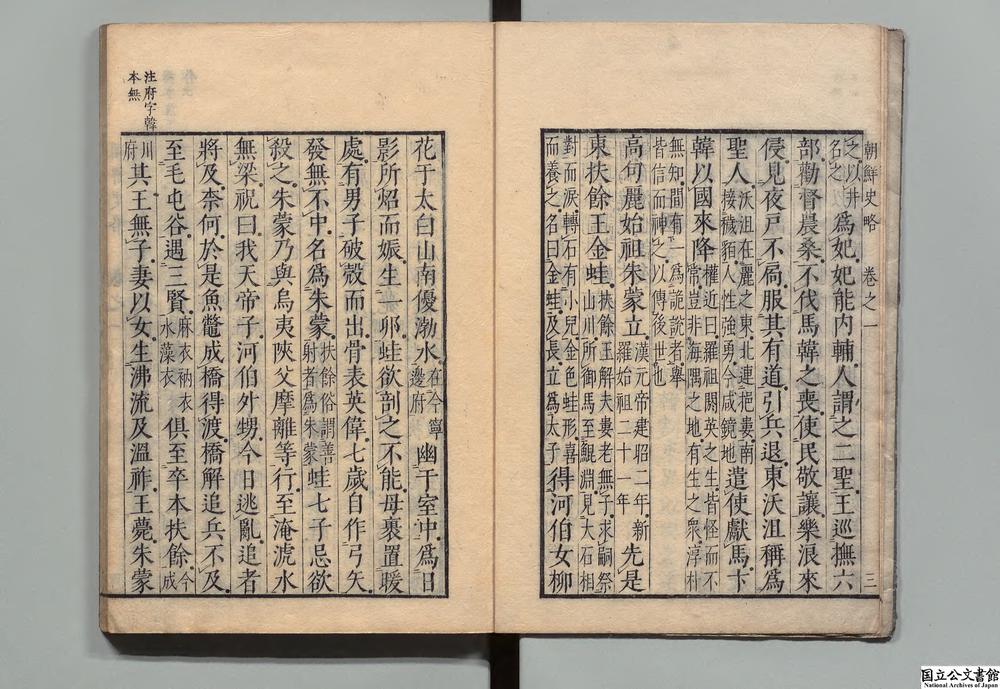 朝鮮史略 卷之一 三
之以井
名之
爲妃妃能内輔人謂之二聖王巡撫六
部勸督農桑不伐馬韓之喪使民敬讓樂浪來
侵見夜戸不扃服其有道引兵退東沃沮稱爲
聖人
沃沮在麗之東北連挹婁南
接穢貊人性強勇今咸鏡地
遣使獻馬卞
韓以國來降
權近曰羅祖閼英之生皆怪而不
常豈非海隅之地有生之衆浮朴
無知間有一爲詭說者舉
皆信而神之以傳後世也
高句麗始祖朱蒙立
漢元帝建昭二年新
羅始祖二十一年
先是
東扶餘王金蛙
扶餘王解夫婁老無子求嗣祭
山川所御馬至鯤淵見大石相
對而淚轉石有小兒金色蛙形喜
而養之名曰金蛙及長立爲太子
得河伯女柳
花于太白山南優渤水
在今寧
邊府
幽于室中爲日
影所炤而娠生一卵蛙欲剖之不能母裹置暖
處有男子破殼而出骨表英偉七歲自作弓矢
發無不中名爲朱蒙
扶餘俗謂善
射者爲朱蒙
蛙七子忌欲
殺之朱蒙乃與烏夷陜父摩離等行至淹淲水
無梁祝曰我天帝子河伯外甥今日逃亂追者
將及柰何於是魚鼈成橋得渡橋解追兵不及
至毛屯谷遇三賢
麻衣衲衣
水藻衣
俱至卒本扶餘
今
成
川
府
其王無子妻以女生沸流及溫祚王薨朱蒙
注府字韓
本無
国立公文書館
National Archives of Japan